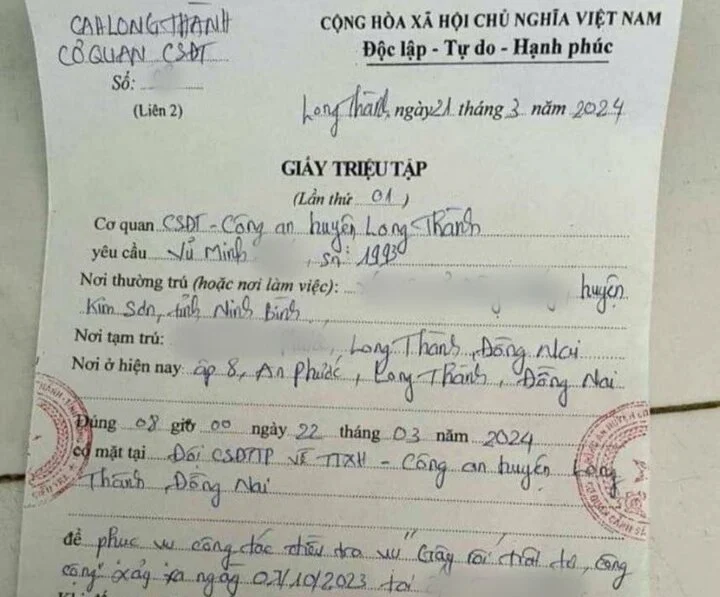 CAH LONG THÀNH
CƠ QUAN CSĐT
Số:
(Liên 2)
CỘNG HÒA XÃ HỘI CHỦ NGHĨA VIỆT NAM
Độc lập - Tự do - Hạnh phúc
Long Thành, ngày 21 tháng 3 năm 2024
GIẤY TRIỆU TẬP
(Lần thứ 01)
Cơ quan CSĐT - Công an huyện Long Thành
yêu cầu Vũ Minh , sn: 1993
Nơi thường trú (hoặc nơi làm việc): huyện
Kim Sơn, tỉnh Ninh Bình
Nơi tạm trú: , Long Thành, Đồng Nai
Nơi ở hiện nay ấp 8, An Phước, Long Thành, Đồng Nai
Đúng 08 giờ 00 ngày 22 tháng 03 năm 2024
có mặt tại Đội CSĐTTP về TTXH - Công an huyện Long
Thành, Đồng Nai
để phục vụ công tác điều tra vụ "Gây rối trật tự công
cộng" xảy ra ngày 07/10/2023 tại